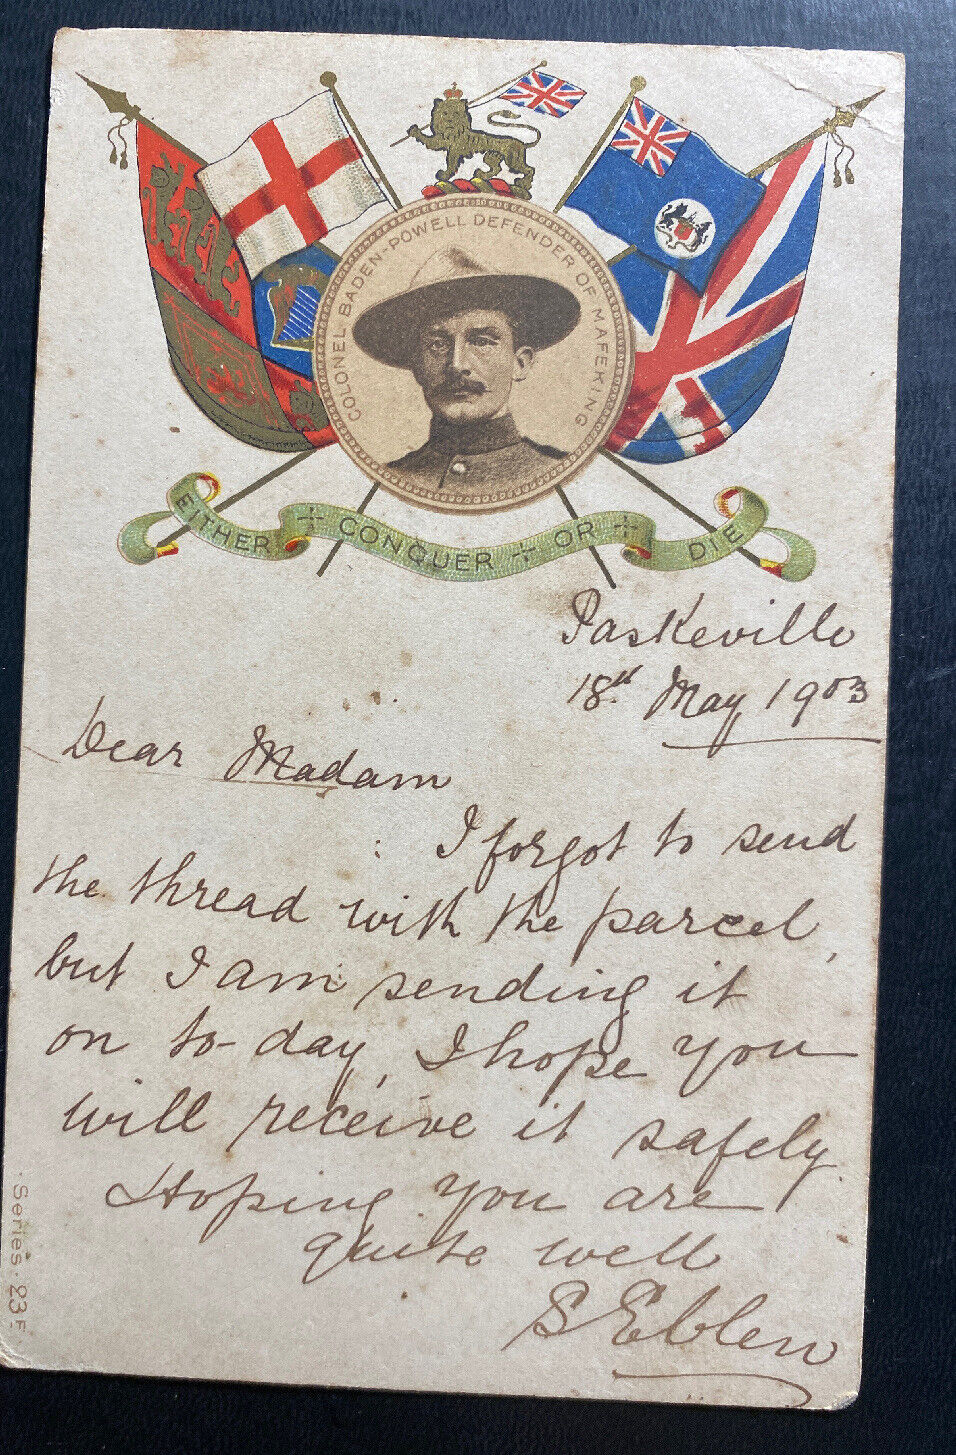 COLONEL BADEN-POWELL DEFENDER OF MAFEKING
EITHER + CONQUER + OR + DIE
Paskeville
18th May 1903
Dear Madam
I forgot to send
the thread with the parcel,
but I am sending it
on to-day, I hope you
will receive it safely.
Hoping you are
quite well
S Eblen
Series. 23F.